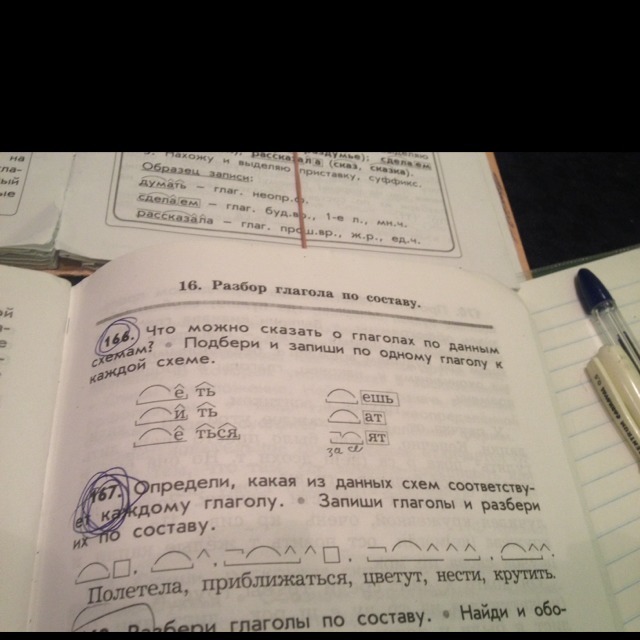 рассказала (сказ, сказка).
Нахожу и выделяю приставку, суффикс.
Образец записи:
думать – глаг. неопр.ф.
сделаем – глаг. буд.вр., 1-е л., мн.ч.
рассказала – глаг. прош.вр., ж.р., ед.ч.
16. Разбор глагола по составу.
166. Что можно сказать о глаголах по данным
схемам? • Подбери и запиши по одному глаголу к
каждой схеме.
е ть ешь
и ть ат
е ться ят
167. Определи, какая из данных схем соответству-
ет каждому глаголу. • Запиши глаголы и разбери
их по составу.
Полетела, приближаться, цветут, нести, крутить.
Разбери глаголы по составу. • Найди и обо-